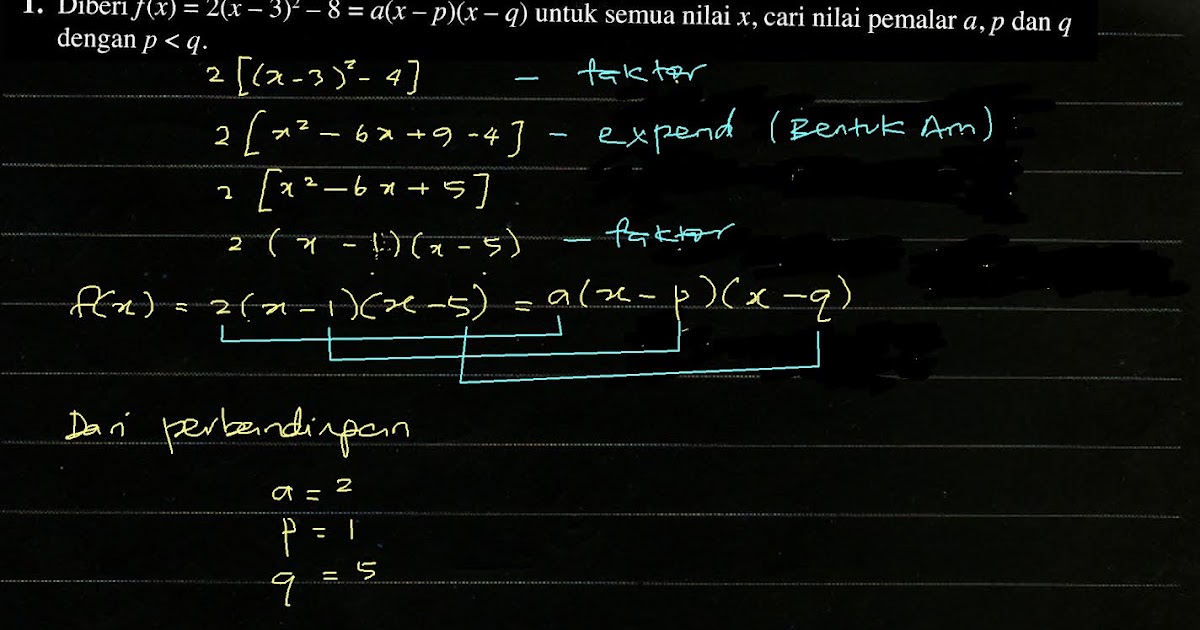 1. Diberi f(x) = 2(x – 3)² – 8 = a(x – p)(x – q) untuk semua nilai x, cari nilai pemalar a, p dan q
dengan p < q.
2[(x-3)²-4] - faktor
2[x²-6x+9-4] - expend (Bentuk Am)
2[x²-6x+5]
2(x-1)(x-5) - faktor
f(x) = 2(x-1)(x-5) = a(x-p)(x-q)
Dari perbandingan
a = 2
p = 1
q = 5